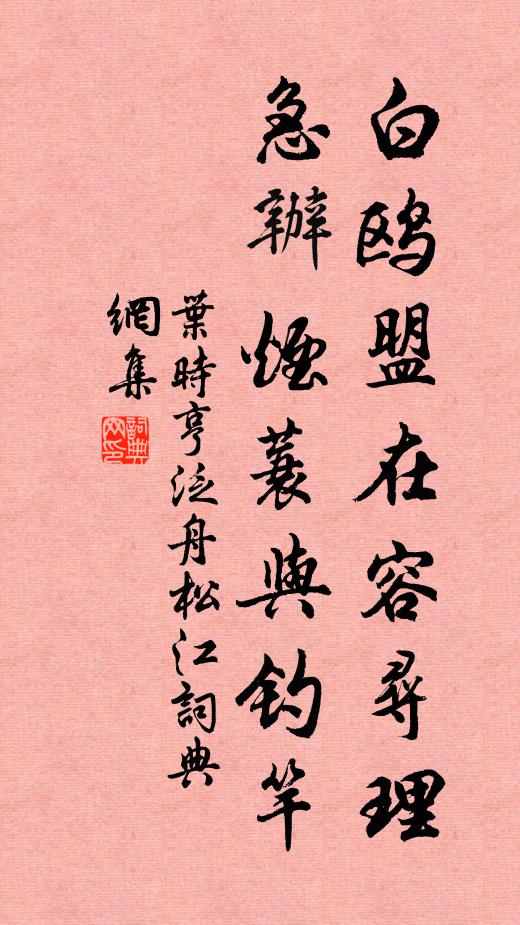 白鷗盟在容尋理
急辦煙蓑與釣竿
葉時亨泛舟松江詞典
網集
詞典
网印